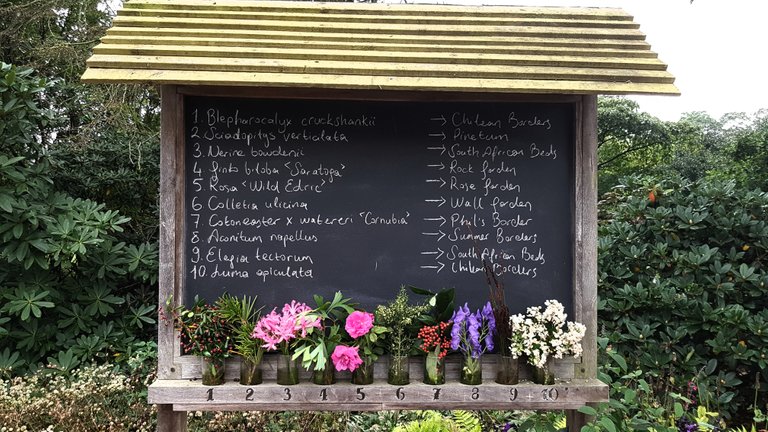 1. Blepharocalyx cruckshankii → Chilean Borders
2. Sciadopitys verticilata → Pinetum
3. Nerine bowdenii → South African Beds
4 Ginko biloba 'Saratoga' → Rock Garden
5 Rosa 'Wild Edric' → Rose Garden
6 Colletia ulicina → Wall Garden
7 Cotoneaster x watereri 'Cornubia' → Phil's Border
8 Aconitum napellus → Summer Borders
9. Elegia tectorum → South African Beds
10. Luma apiculata → Chilean Borders
1 2 3 4 5 6 7 8 9 10